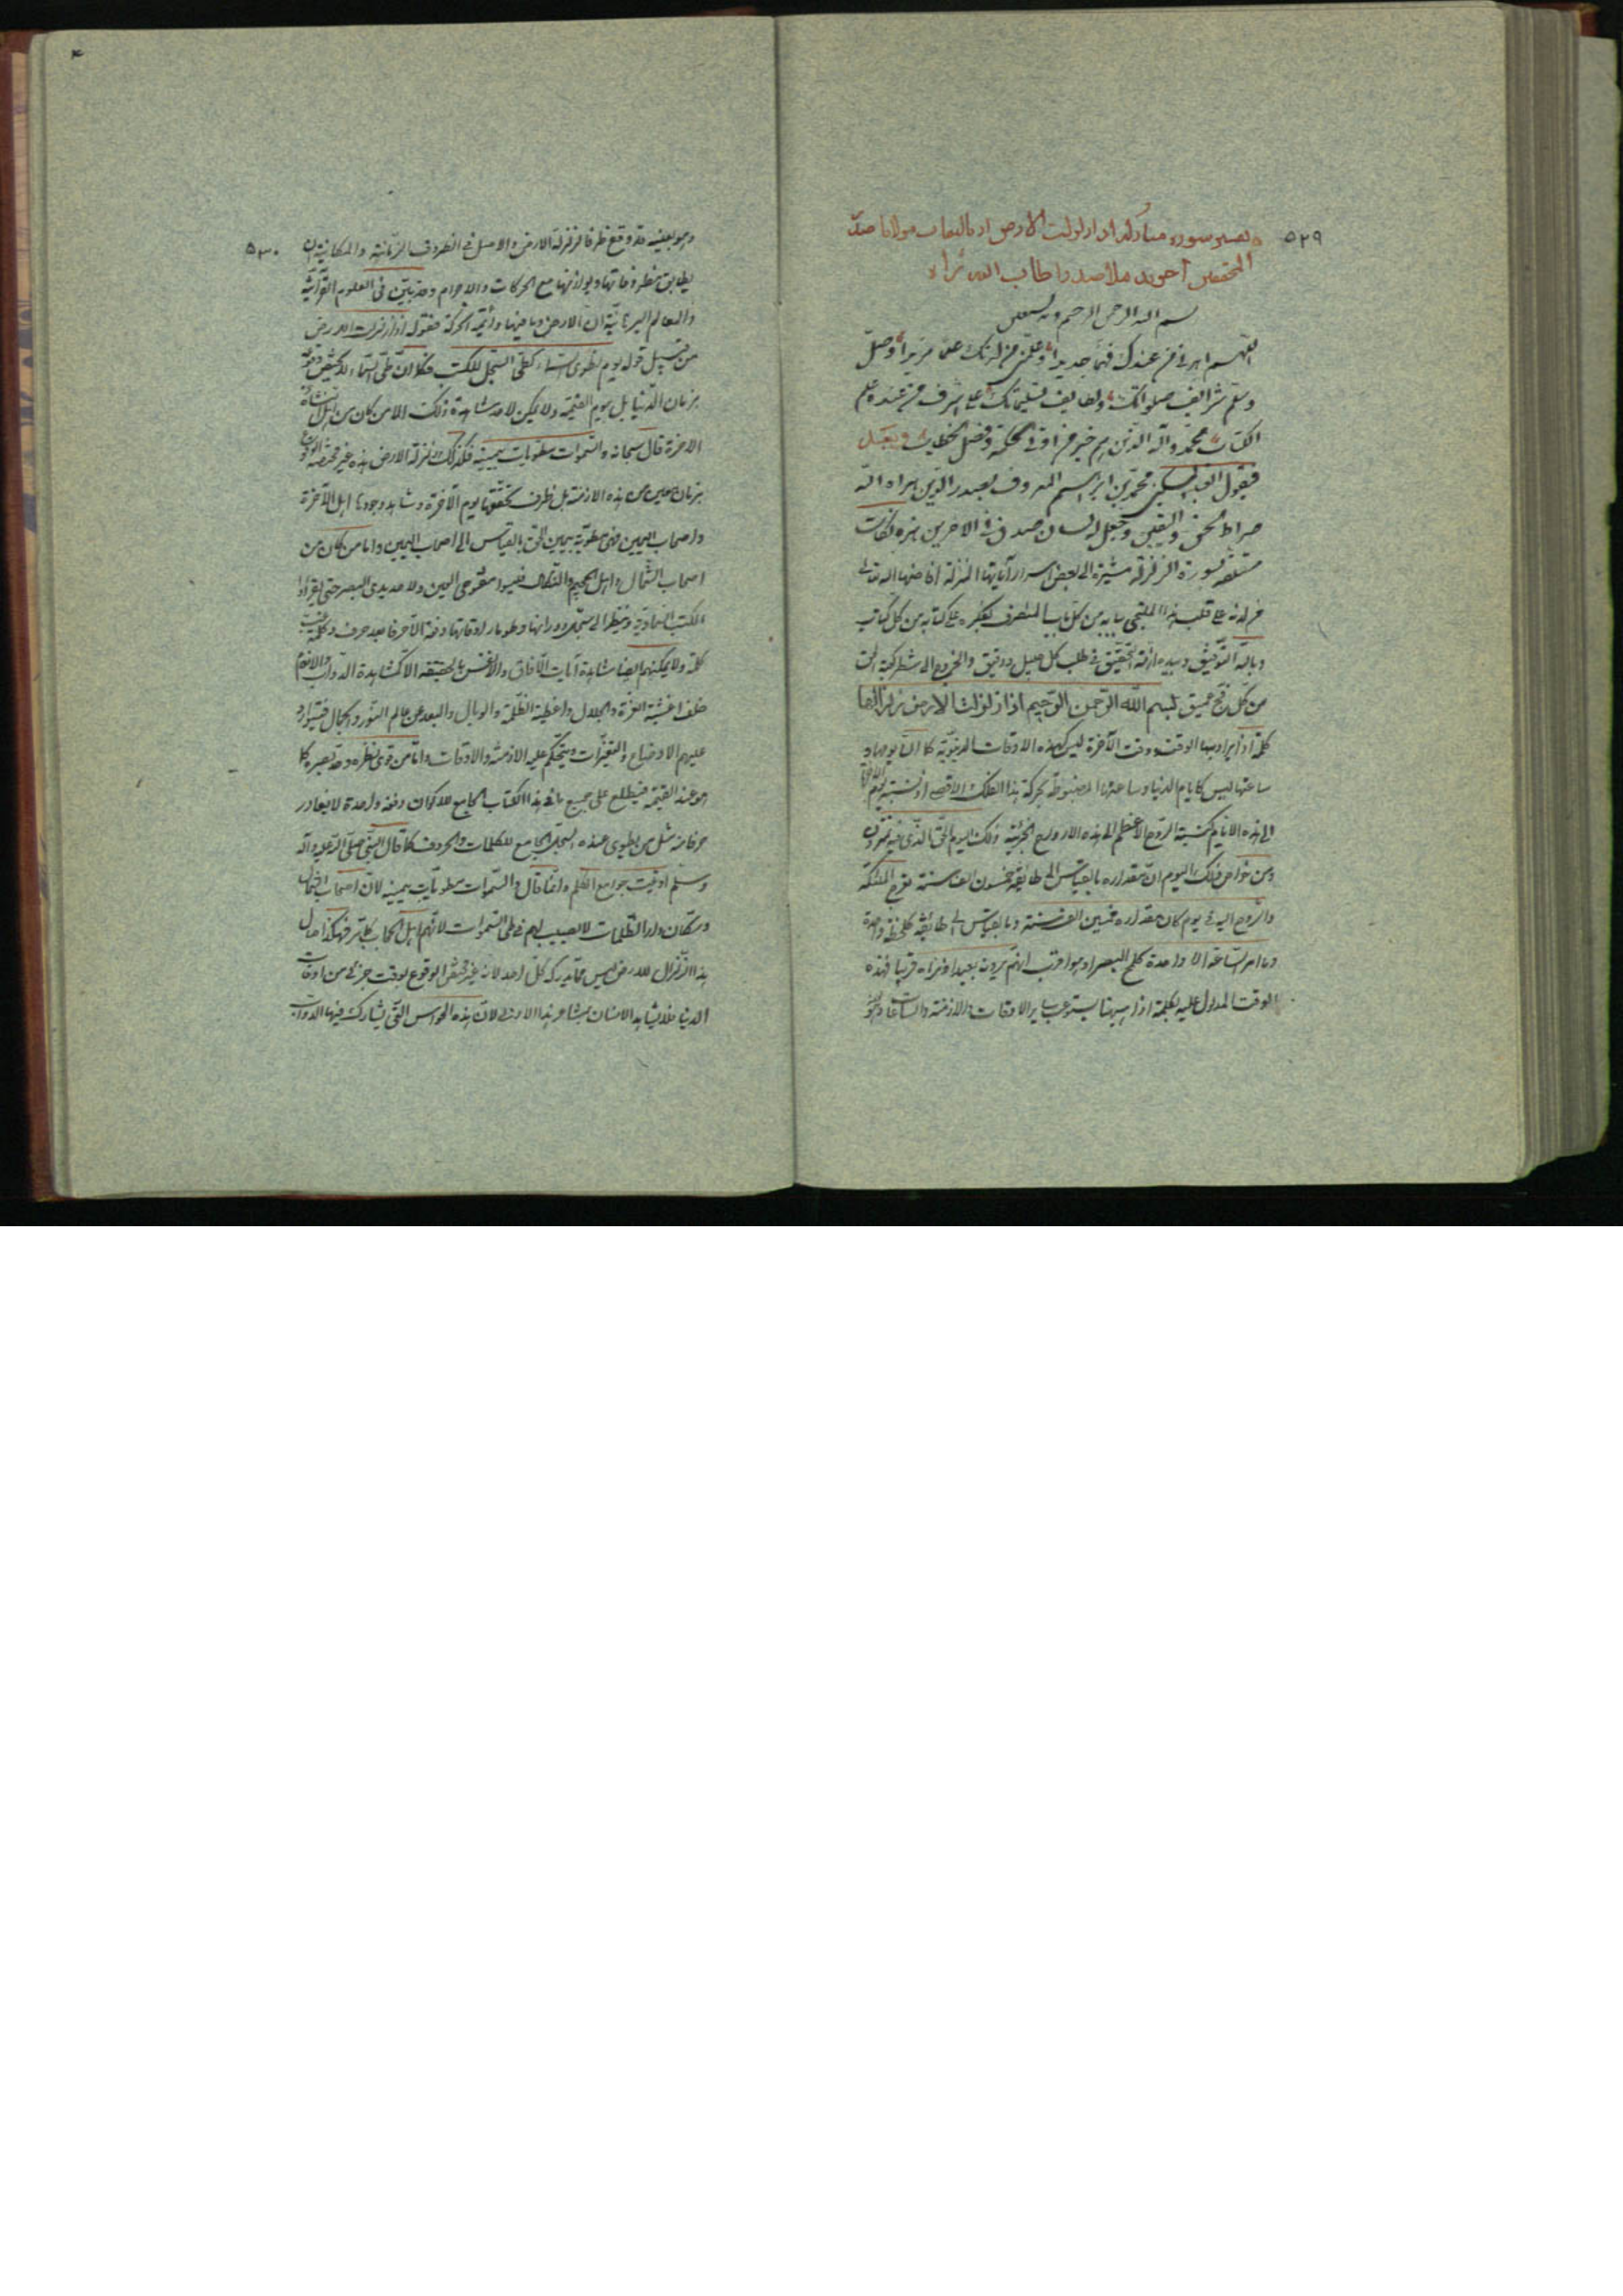 ٥٢٩
تفسير سوره مباركه اذا زلزلت الارض از تاليفات مولانا صدر
المحققين آخوند ملا صدرا طاب الله ثراه
بسم الله الرحمن الرحيم وبه نستعين
اللهم اهدني من عندك فهما جديدا وعلمني من لدنك علما مزيدا وصل
وسلم شرائف صلواتك ولطايف تسليماتك على اشرف من عنده علم
الكتاب محمد وآله الذين هم خير من اوتي الحكمة وفصل الخطاب وبعد
فيقول العبد المسكين محمد بن ابراهيم المعروف بصدر الدين هداه الله
صراط الحق واليقين وجعل له لسان صدق في الآخرين هذه نكات
متعلقه بسورة الزلزلة مشيرة الى بعض اسرار آياتها المنزلة افاضها الله تعالى
من لدنه على قلب هذا الملتجي ببابه من كل باب المتصرف بفكره على كتابه من كل كتاب
وبالله التوفيق وبيده ازمة التحقيق في طلب كل جليل ودقيق والخروج الى شطر كعبة الحق
من كل فج عميق بسم الله الرحمن الرحيم اذا زلزلت الارض زلزالها
كلمة اذا يراد بها الوقت ووقت الآخرة ليس كهذه الاوقات الدنيوية كما ان يومها و
ساعتها ليس كايام الدنيا وساعتها المضبوطة بحركة هذا الفلك الاقصى اذ نسبة يوم الآخرة
الى هذه الايام كنسبة الروح الاعظم الى هذه الارواح الجزئية وذلك اليوم الحق الذي فيه تمترون
ومن خواص ذلك اليوم ان مقداره بالقياس الى طائفة خمسون الف سنة تعرج الملئكة
والروح اليه في يوم كان مقداره خمسين الف سنة وبالقياس الى طائفة كلحظة واحدة
وما امر الساعة الا واحدة كلمح البصر او هو اقرب انهم يرونه بعيدا ونراه قريبا فهذه
الوقت المدلول عليه بكلمة اذا هيهنا يستوعب ساير الاوقات والازمنة والساعات وهو
٥٣٠
وهو بعينه قد وقع ظرفا لزلزلة الارض والاصل في الظروف الزمانية والمكانية ان
يطابق مظروفاتها ويوازنها مع الحركات والاجرام وقد تبين في العلوم القرآنية
والمعالم البرهانية ان الارض وما فيها دائمة الحركة فقوله اذا زلزلت الارض
من قبيل قوله يوم نطوي السماء كطي السجل للكتب فكما ان طي السماء لا يختص وقوعه
بزمان الدنيا بل بيوم القيمة ولا يمكن لاحد مشاهدة ذلك الا من كان من اهل نشاة
الآخرة قال سبحانه والسموات مطويات بيمينه فكذلك زلزلة الارض هذه غير مختصة الوقوع
بزمان معين من هذه الازمنة بل ظرف تحققها يوم الآخرة وشاهد وجودها اهل الآخرة
واصحاب اليمين فهي مطوية بيمين الحق بالقياس الى اصحاب اليمين واما من كان من
اصحاب الشمال واهل الجحيم والنكال فليسوا مفتوحي العين ولا حديدي البصر حتى يقراوا
الكتب السماوية وينظر الى سجل دورانها وطومار اوقاتها دفعة الا حرفا بعد حرف وكلمة غب
كلمة ولا يمكنهم ايضا مشاهدة آيات الآفاق والانفس بالحقيقة الا كمشاهدة الدواب والانعام
خلف اغشية العزة والجلال واغطية الظلمة والوبال والبعد عن عالم النور والجمال فيتوارد
عليهم الاوضاع والتغيرات ويتحكم عليه الازمنة والاوقات واما من قوي نظره وحد بصره كما
هو عند القيمة فيطلع على جميع ما في هذا الكتاب الجامع للاكوان دفعة واحدة لا يغادر
حرفا منه مثل من يطوي عنده السجل الجامع للكلمات والحروف كما قال النبي صلى الله عليه وآله
وسلم اوتيت جوامع الكلم وانما قال والسموات مطويات بيمينه لان اصحاب الشمال
وسكان دار الظلمات لا نصيب لهم في طي السموات لانهم اهل الحجاب بكليتهم فهكذا حال
هذا الزلزال للارض ليس مما يدركه كل احد لانه غير مختص الوقوع بوقت جزئي من اوقات
الدنيا فلا يشاهد الانسان بمشاعر هذا الارض لان هذه الحواس التي يشارك فيها الدواب